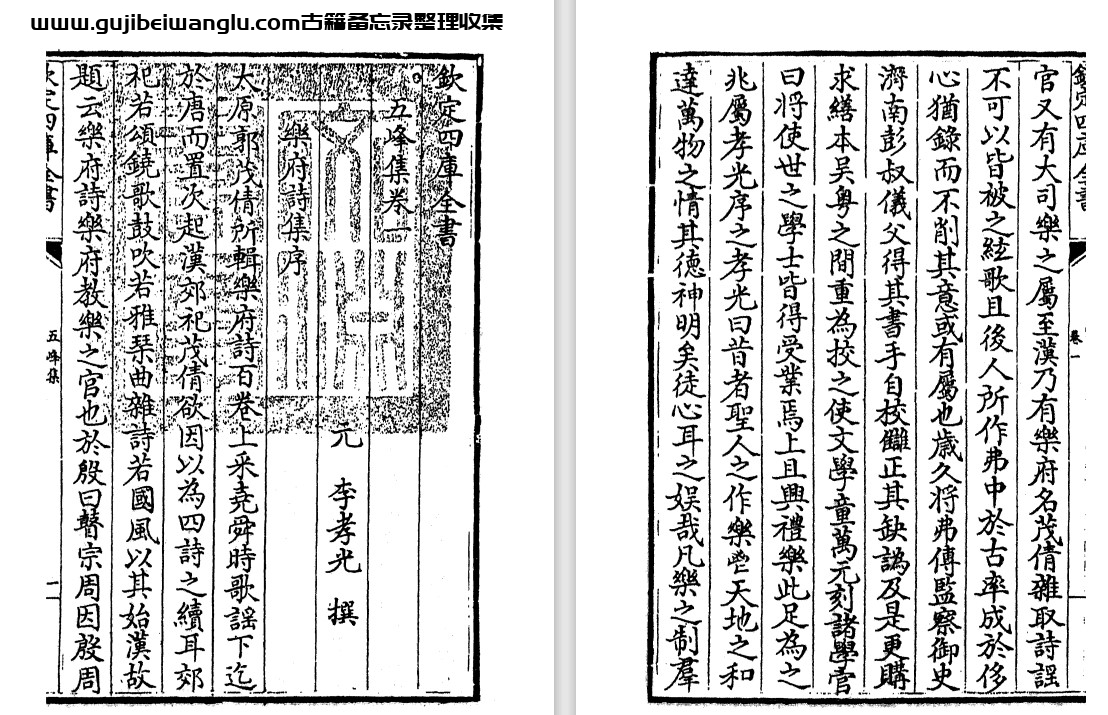 www.gujibeiwanglu.com古籍备忘录整理收集
欽定四庫全書
五峰集卷一
元 李孝光 撰
樂府詩集序
太原郭茂倩所輯樂府詩百卷上采堯舜時歌謡下迄
於唐而置次起漢郊祀茂倩欲因以為四詩之續耳郊
祀若頌鐃歌鼓吹若雅琴曲雜詩若國風以其始漢故
題云樂府詩樂府教樂之官也於殷曰瞽宗周因殷周
欽定四庫全書
五峰集
一
欽定四庫全書
卷一
官又有大司樂之屬至漢乃有樂府名茂倩雜取詩謡
不可以皆被之絃歌且後人所作弗中於古率成於侈
心猶錄而不削其意或有屬也歲久將弗傳監察御史
濟南彭叔儀父得其書手自校讎正其缺譌及是更購
求繕本吳粤之間重為挍之使文學童萬元刻諸學官
曰將使世之學士皆得受業焉上且興禮樂此足為之
兆屬孝光序之孝光曰昔者聖人之作樂天地之和
達萬物之情其德神明矣徒心耳之娛哉凡樂之制羣